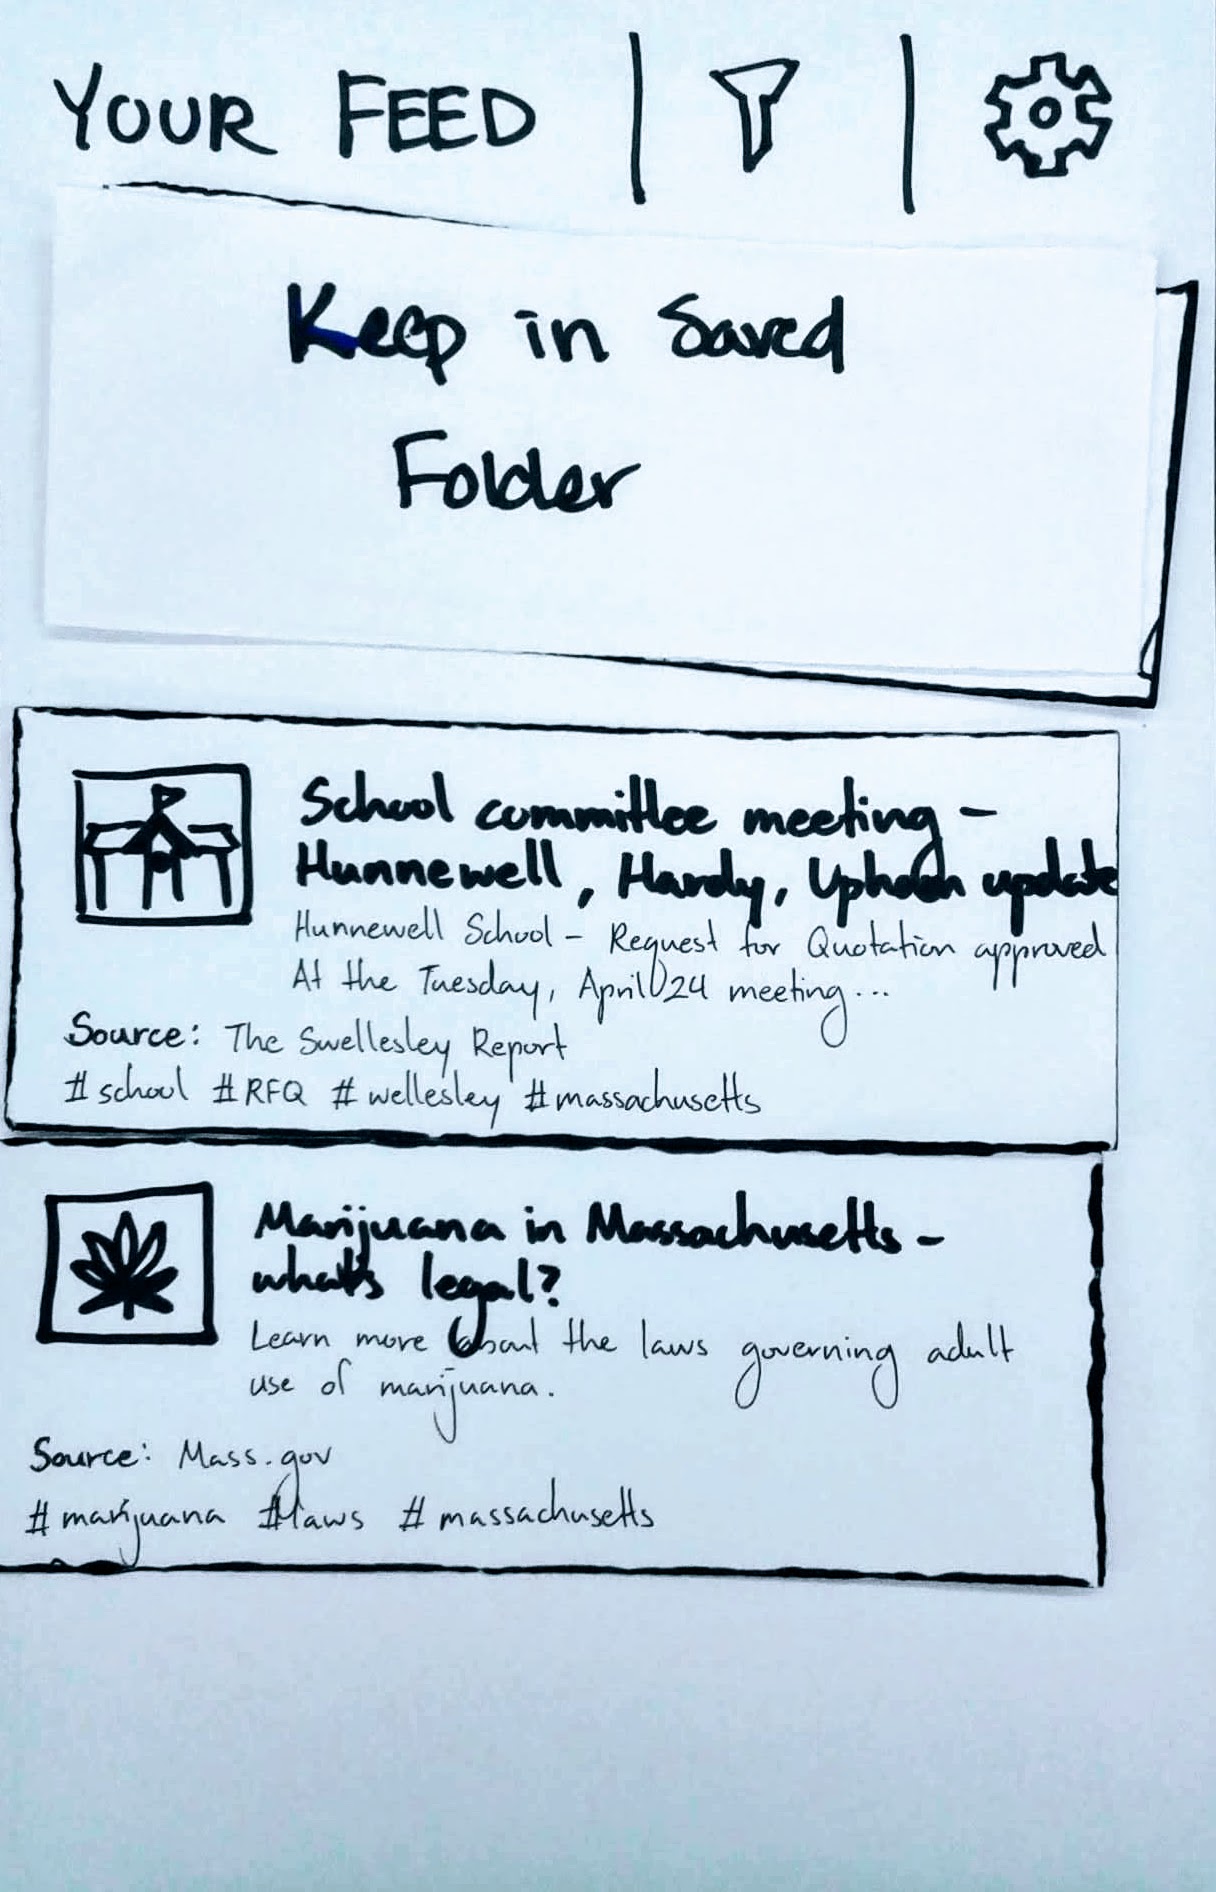 YOUR FEED
Keep in Saved
Folder
School committee meeting -
Hunnewell, Hardy, Upham update
Hunnewell School - Request for Quotation approved
At the Tuesday, April 24 meeting...
Source: The Swellesley Report
#school #RFQ #wellesley #massachusetts
Marijuana in Massachusetts -
what's legal?
Learn more about the laws governing adult
use of marijuana.
Source: Mass.gov
#marijuana #laws #massachusetts